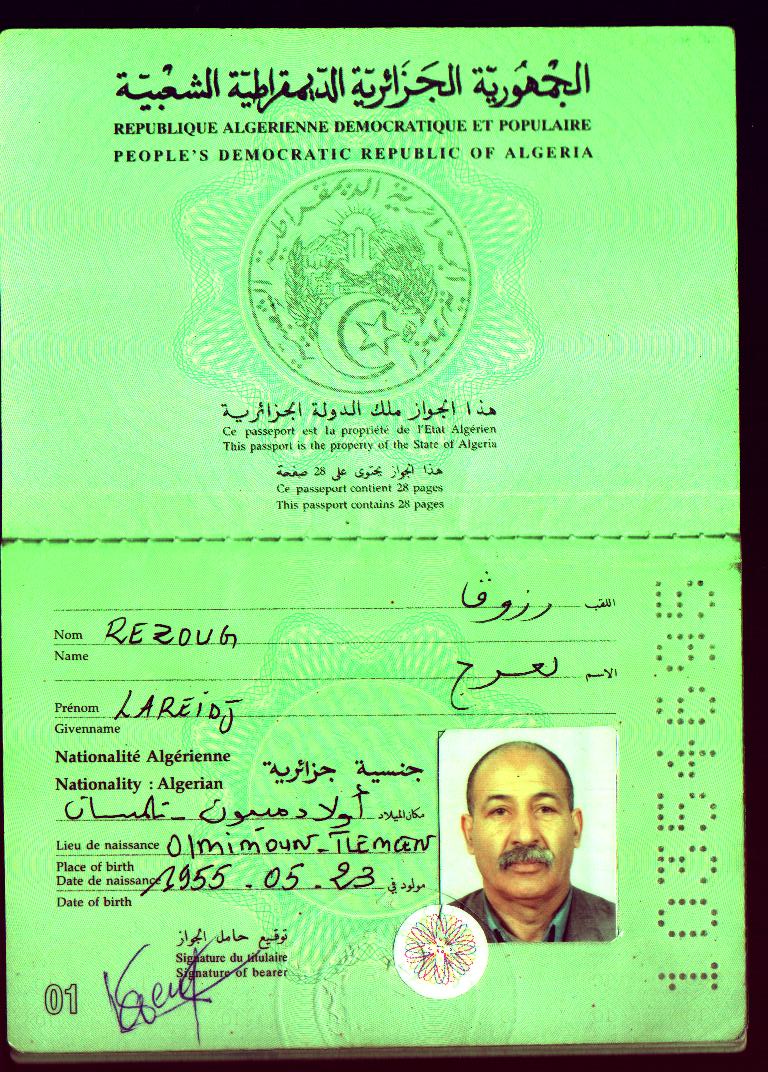 الجمهورية الجزائرية الديمقراطية الشعبية
REPUBLIQUE ALGERIENNE DEMOCRATIQUE ET POPULAIRE
PEOPLE'S DEMOCRATIC REPUBLIC OF ALGERIA
هذا الجواز ملك الدولة الجزائرية
Ce passeport est la propriété de l'Etat Algérien
This passport is the property of the State of Algeria
هذا الجواز يحتوي على 28 صفحة
Ce passeport contient 28 pages
This passport contains 28 pages
اللقب رزوڤ
Nom REZOUG
Name
الاسم لعرج
Prénom LAREIDJ
Givenname
Nationalité Algérienne
جنسية جزائرية
Nationality : Algerian
مكان الميلاد أولاد ميمون - تلمسان
Lieu de naissance O/mimoun - TLEMCEN
Place of birth
Date de naissance 1955 - 05 - 23 مولود في
Date of birth
توقيع حامل الجواز
Signature du titulaire
Signature of bearer
01